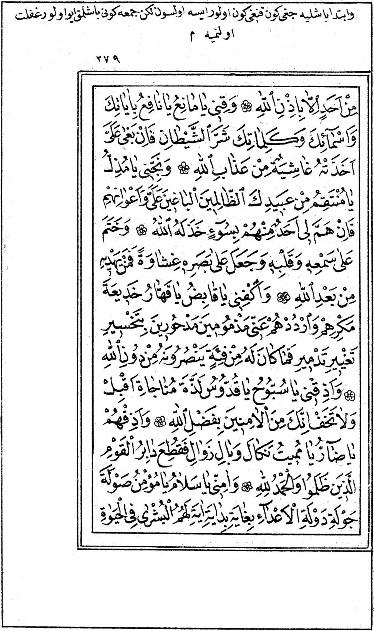 وابتدا باشليه جقى كون قنغى كون اولور ايسه اولسون لكن جمعه كونى باشلمق ايو اولور غفلت
اولنميه م
٣٧٩
مِنْ اَحَدٍ اِلَّا بِاِذْنِ اللهِ ۞ وَقِنِى يَا مَانِعُ يَا نَافِعُ بِاٰيَاتِكَ
وَاَسْمَائِكَ وَكَلِمَاتِكَ شَرَّ الشَّيْطَانِ فَاِنْ بَغٰى عَلَىَّ
اَخَذَتْهُ غَاشِيَةٌ مِنْ عَذَابِ اللهِ ۞ وَنَجِّنِى يَا مُذِلُّ
يَا مُنْتَقِمُ مِنْ عَبِيدِكَ الظَّالِمِينَ الْبَاغِينَ عَلَىَّ وَاَعْوَانِهِمْ
فَاِنْ هَمَّ لِى اَحَدٌ مِنْهُمْ بِسُوۤءٍ خَذَلَهُ اللهُ ۞ وَخَتَمَ
عَلٰى سَمْعِهِ وَقَلْبِهِ وَجَعَلَ عَلٰى بَصَرِهِ غِشَاوَةً فَمَنْ يَهْدِيهِ
مِنْ بَعْدِ اللهِ ۞ وَاكْفِنِى يَا قَابِضُ يَا قَهَّارُ خَدِيعَةَ
مَكْرِهِمْ وَارْدُدْهُمْ عَنِّى مَذْمُومِينَ مَدْحُورِينَ بِتَخْسِيرِ
تَغْيِيرِ تَدْمِيرِ فَمَا كَانَ لَهُ مِنْ فِئَةٍ يَنْصُرُونَهُ مِنْ دُونِ اللهِ
۞ وَاَذِقْنِى يَا سُبُّوحُ يَا قُدُّوسُ لَذَّةَ مُنَاجَاةِ اَقْبِلْ
وَلَا تَخَفْ اِنَّكَ مِنَ الْاٰمِنِينَ بِفَضْلِ اللهِ ۞ وَاَذِقْهُمْ
يَا ضَاۤرُّ يَا مُمِيتُ نَكَالَ وَبَالِ زَوَالِ فَقُطِعَ دَابِرُ الْقَوْمِ
الَّذِينَ ظَلَمُوا وَالْحَمْدُ لِلّٰهِ ۞ وَاٰمِنِّى يَا سَلَامُ يَا مُؤْمِنُ صَوْلَةَ
جَوْلَةِ دَوْلَةِ الْاَعْدَاۤءِ بِغَايَةِ بِدَايَةِ اٰيَةِ لَهُمُ الْبُشْرٰى فِى الْحَيٰوةِ